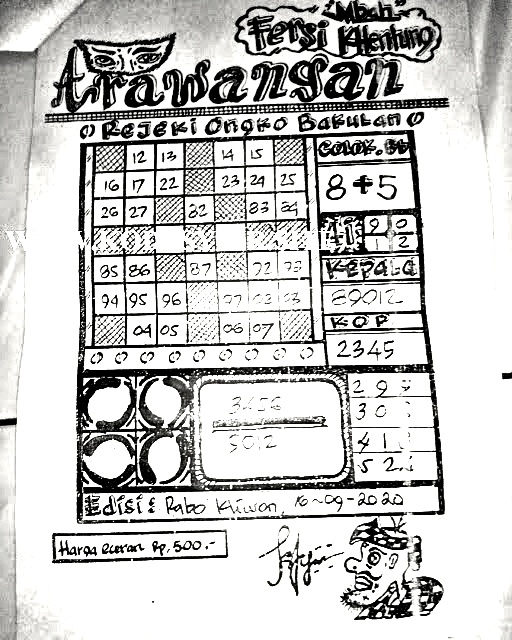 "Mbah"
Fersi KHentung
Arawangan
Rejeki Ongko Bakulan
12 13 14 15
16 17 22 23 24 25
26 27 32 33 34
85 86 87 92 93
94 95 96 97
04 05 06 07
COLOK. BB
8+5
AI 9 0
1 2
KEPALA
89012
KOP
2345
3456
9012
2 9
3 0
4 1
5 2
Edisi: Rabo Kliwon, 16-09-2020
Harga eceran Rp. 500.-